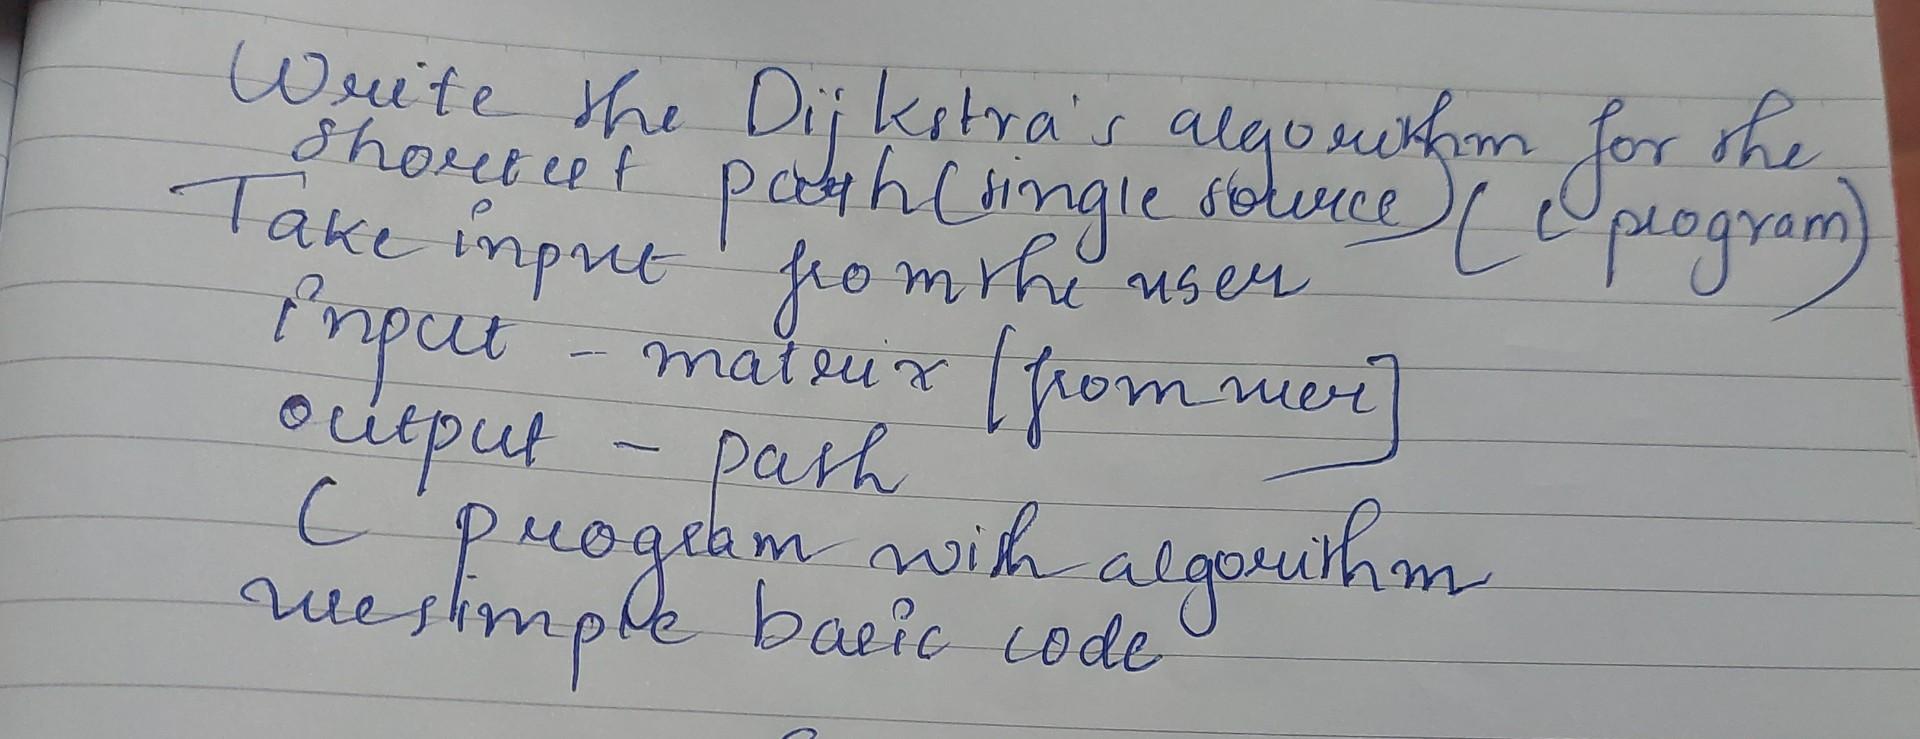 Write the Dijkstra's algorithm for the
shortest path (single source) (C program)
Take input from the user
input - matrix [from user]
output - path
C program with algorithm
use simple basic code